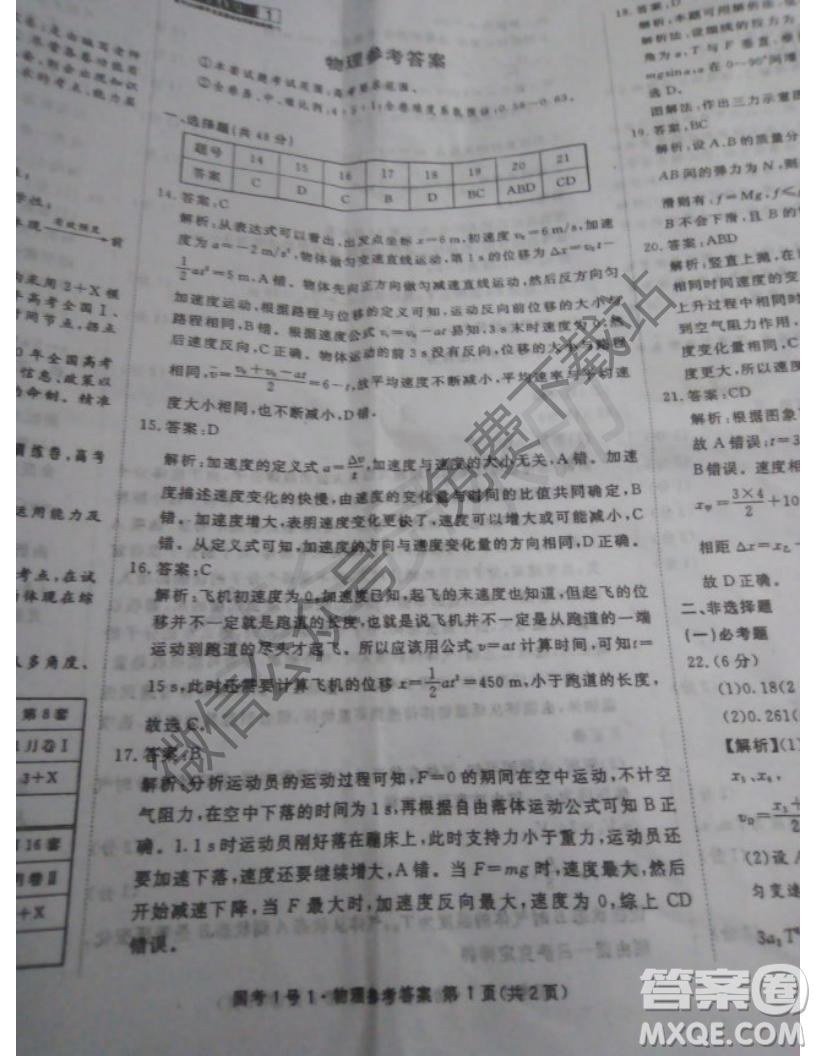 1
物理参考答案
①本套试题考试范围:高考要求范围。
②全卷易、中、难比例:4:5:1;全卷难度系数预估:0.58—0.63。
一、选择题(共48分)
题号 14 15 16 17 18 19 20 21
答案 C D C B D BC ABD CD
14. 答案:C
解析:从表达式可以看出,出发点坐标x=6m,初速度v₀=6m/s,加速
度为a=-2m/s²,物体做匀变速直线运动,第1s的位移为Δx=v₀t-
1/2at²=5m,A错。物体先向正方向做匀减速直线运动,然后反方向匀
加速度运动,根据路程与位移的定义可知,运动反向前位移的大小与
路程相同,B错。根据速度公式vₜ=v₀-at易知,3s末时速度为0,然
后速度反向,C正确。物体运动的前3s没有反向,位移的大小与路程
相同,v̄=(v₀+v₀-at)/2=6-t,故平均速度不断减小,平均速率与平均速
度大小相同,也不断减小,D错。
15. 答案:D
解析:加速度的定义式a=Δv/t,加速度与速度的大小无关,A错。加速
度描述速度变化的快慢,由速度的变化量与时间的比值共同确定,B
错。加速度增大,表明速度变化更快了,速度可能增大也可能减小,C
错。从定义式可知,加速度的方向与速度变化量的方向相同,D正确。
16. 答案:C
解析:飞机初速度为0,加速度已知,起飞的末速度也知道,但起飞的位
移并不一定就是跑道的长度,也就是说飞机并不一定是从跑道的一端
运动到跑道的尽头才起飞。所以应该用公式v=at计算时间,可知t=
15s,此时还需要计算飞机的位移x=1/2at²=450m,小于跑道的长度,
故选C。
17. 答案:B
解析:分析运动员的运动过程可知,F=0的期间在空中运动,不计空
气阻力,在空中下落的时间为1s,再根据自由落体运动公式可知B正
确。1.1s时运动员刚好落在蹦床上,此时支持力小于重力,运动员还
要加速下落,速度还要继续增大,A错。当F=mg时,速度最大,然后
开始减速下降,当F最大时,加速度反向最大,速度为0,综上CD
错误。
国考1号1·物理参考答案 第1页(共2页)
18. 答案:D
解析:本题可用图解
法求解,设细线的拉力为
角为α,T与F垂直
mgsinα,α在0~90°间增
选D。
图解法:作出三力示意图
19. 答案:BC
解析:设A、B的质量分
AB间的弹力为N,则
滑则有:f=Mg,f≤
B不会下滑,
20. 答案:ABD
解析:竖直上抛,
相同时间速度的变
上升过程中
到空气阻力作用,
度变化量大
度更大,所以速
21. 答案:CD
解析:根据图象
故A错误;t=3
B错误。速度相
x甲=3×4/2+10
相距 Δx=x乙-
故D正确。
二、非选择题
(一)必考题
22. (6分)
(1)0.18(2
(2)0.261(
【解析】(1)
x₃、x₄,
v_D=x₃+/2
(2)设A
匀变速
3a₁T
是由编写老师
前
采用2+X模
年高考全国Ⅰ、
时间节点,拐点
0年全国高考
信息,政策以
命制。精准
练卷,高考
运用能力及
考点,在试
体现在综
人多角度、
第8套
月卷Ⅰ
3+X
16套
卷Ⅱ
+X
微信公众号 免费下载站
答案卷
MXQE.COM